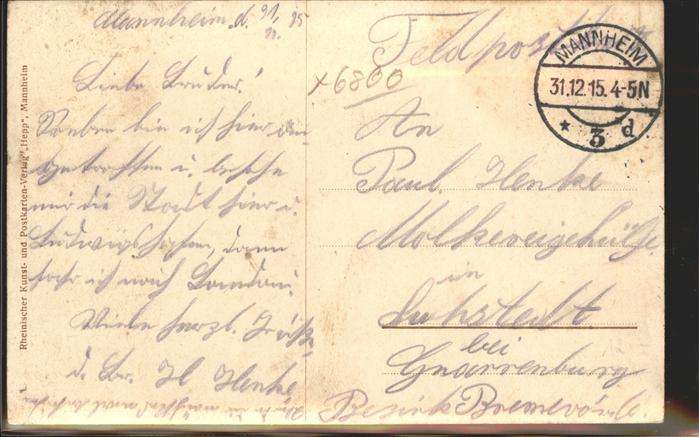 Mannheim, d. 31. 12. 15
Liebe Brüder!
Soeben bin ich hier an
getroffen u. besehe
mir die Stadt hier u.
Ludwigshafen, dann
fahr ich nach Landau.
Viele herzl. Grüße
d. Br. H. Henke
Rheinischer Kunst- und Postkarten-Verlag "Hepp", Mannheim
Feldpost
x6800
MANNHEIM
31.12.15. 4-5N
* 3 d
An
Paul. Henke
Molkereigehülfe
in
Kuhstedt
bei
Gnarrenburg
Bezirk Bremervörde